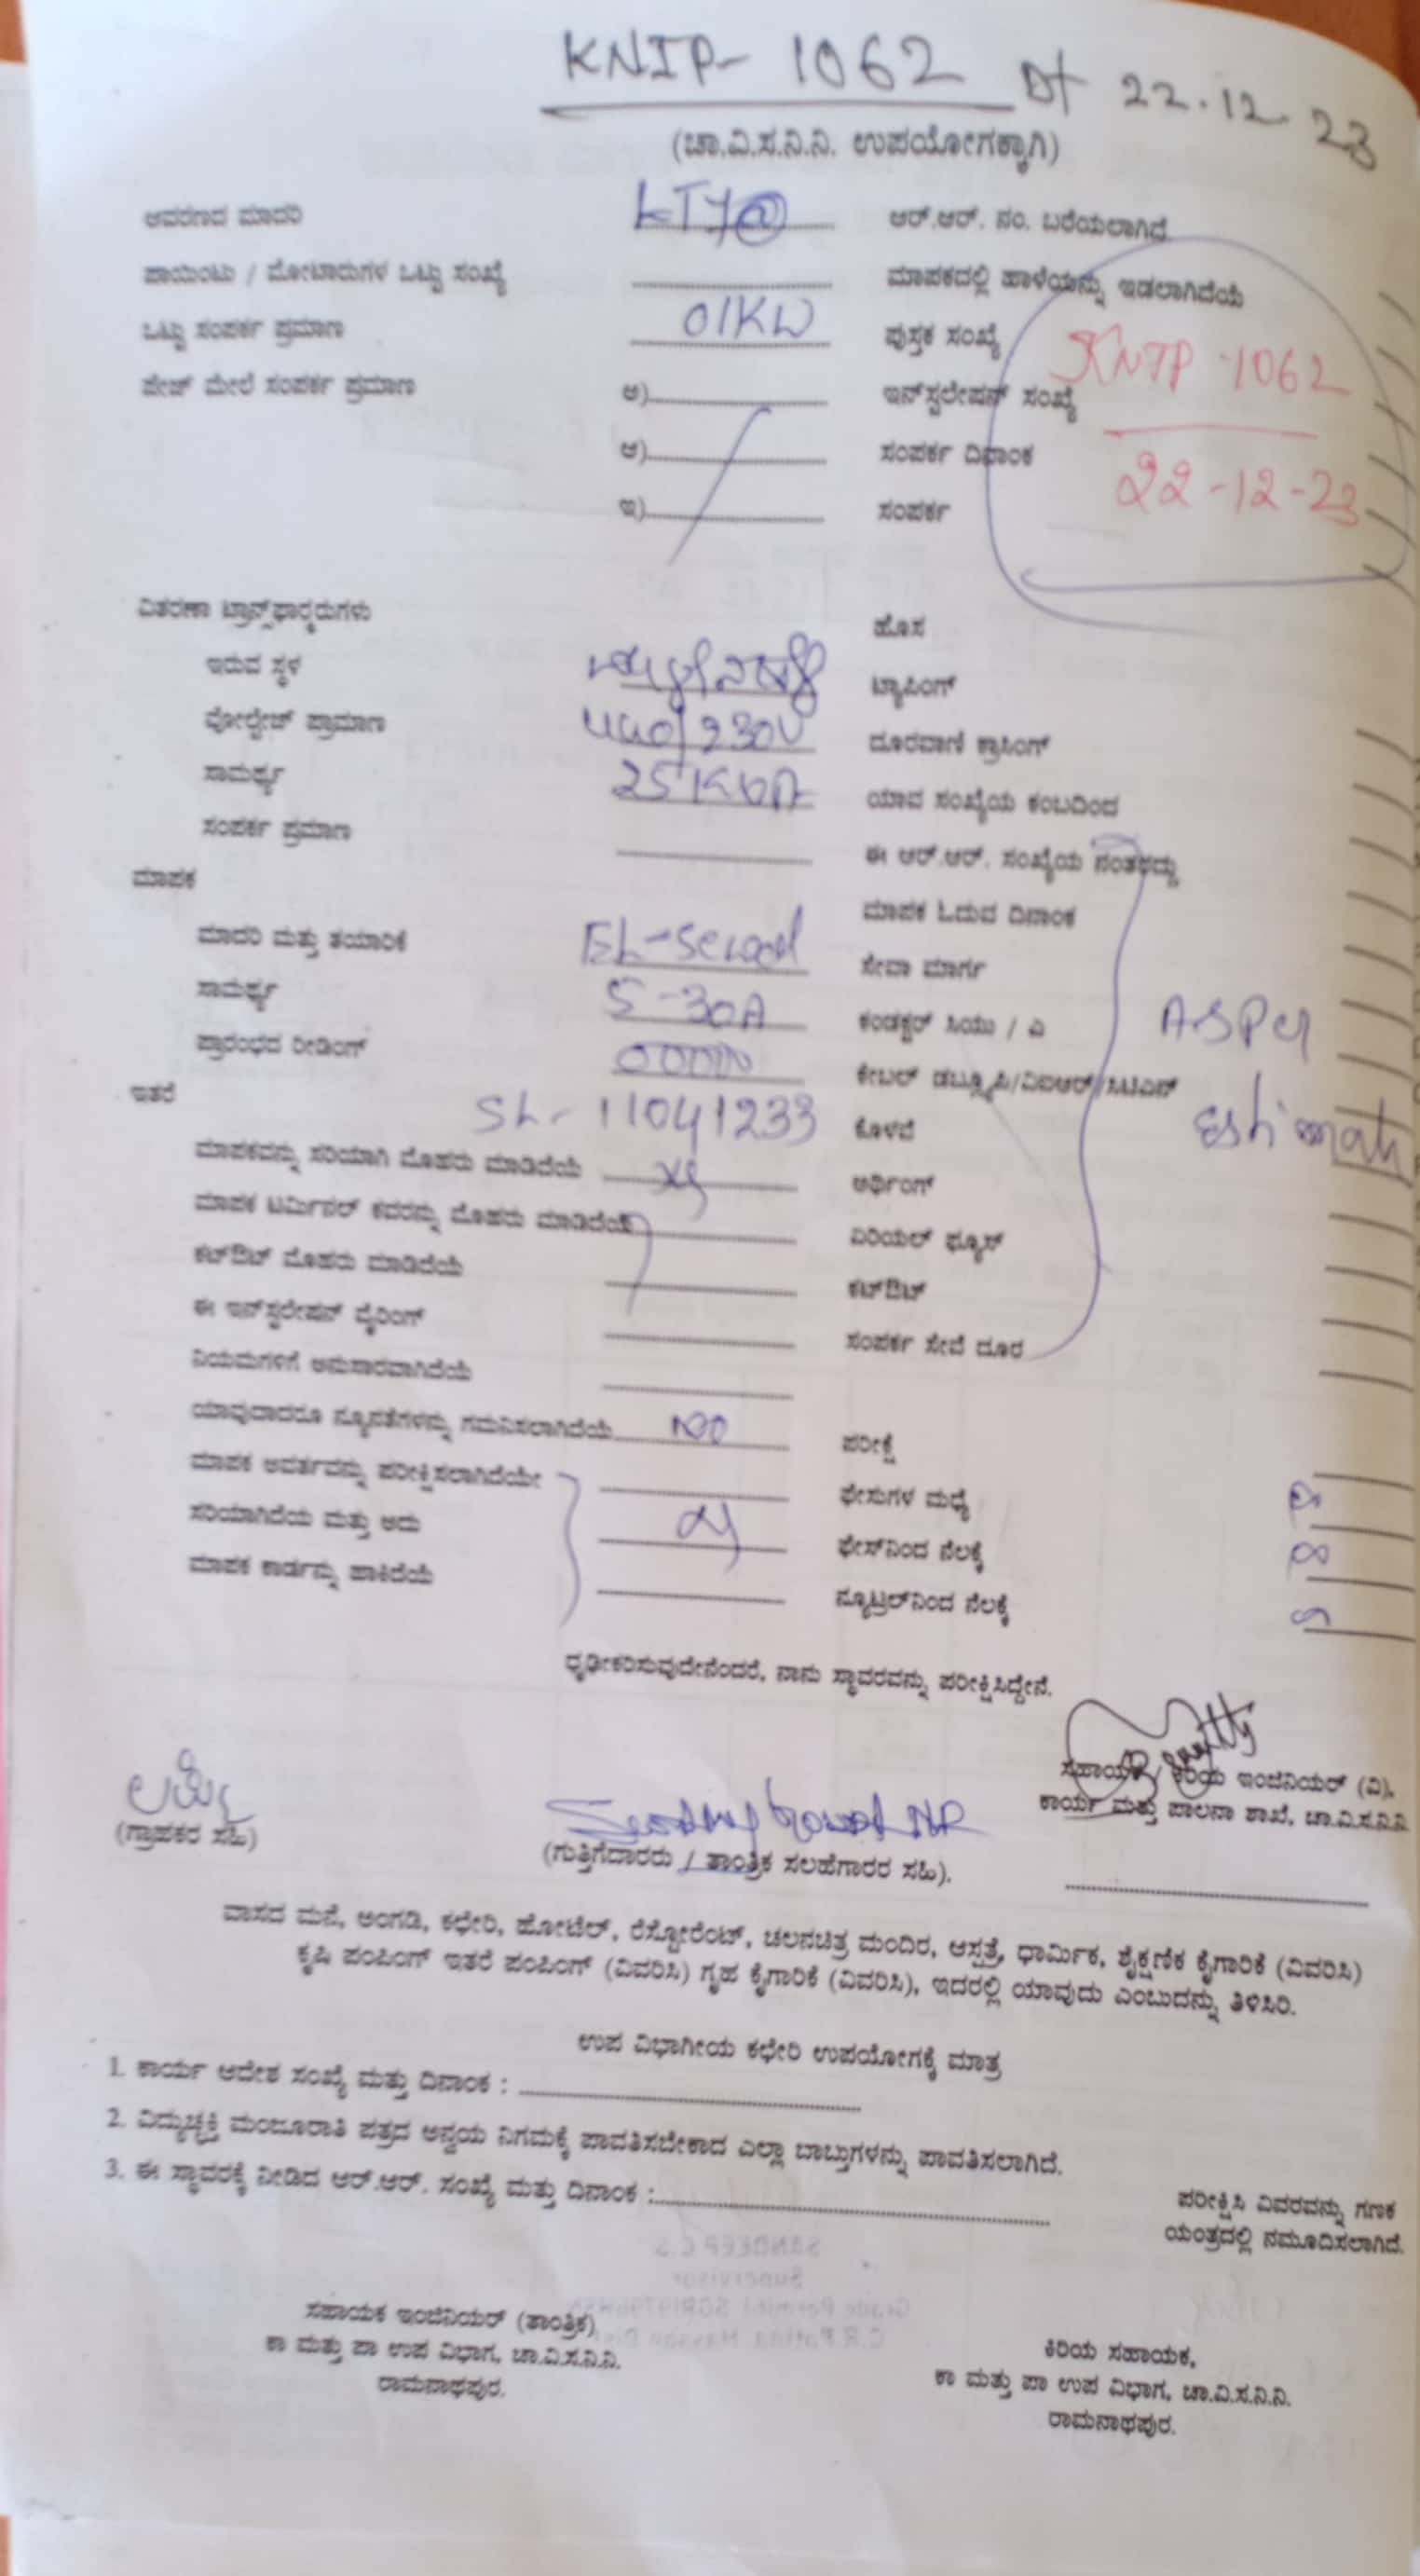 KNIP- 1062 Dt 22.12.23
(ಚಾ.ವಿ.ಸ.ನಿ.ನಿ. ಉಪಯೋಗಕ್ಕಾಗಿ)
ಆವರಣದ ಮಾದರಿ LT7@ ಆರ್.ಆರ್. ನಂ. ಬರೆಯಲಾಗಿದೆ
ಪಾಯಿಂಟು / ಮೋಟಾರುಗಳ ಒಟ್ಟು ಸಂಖ್ಯೆ ಮಾಪಕದಲ್ಲಿ ಹಾಳೆಯನ್ನು ಇಡಲಾಗಿದೆಯೆ
ಒಟ್ಟು ಸಂಪರ್ಕ ಪ್ರಮಾಣ 01KW ಪುಸ್ತಕ ಸಂಖ್ಯೆ KNIP -1062
ಪೇಜ್ ಮೇಲೆ ಸಂಪರ್ಕ ಪ್ರಮಾಣ ಅ) ಇನ್‌ಸ್ಟಲೇಷನ್ ಸಂಖ್ಯೆ
ಆ) ಸಂಪರ್ಕ ದಿನಾಂಕ 22-12-23
ಇ) ಸಂಪರ್ಕ
ವಿತರಣಾ ಟ್ರಾನ್ಸ್‌ಫಾರ್‍ಮರುಗಳು ಹೊಸ
ಇರುವ ಸ್ಥಳ ಟ್ಯಾಪಿಂಗ್
ವೋಲ್ಟೇಜ್ ಪ್ರಾಮಾಣ 440/230V ದೂರವಾಣಿ ಕ್ರಾಸಿಂಗ್
ಸಾಮರ್ಥ್ಯ 25KVA ಯಾವ ಸಂಖ್ಯೆಯ ಕಂಬದಿಂದ
ಸಂಪರ್ಕ ಪ್ರಮಾಣ ಈ ಆರ್.ಆರ್. ಸಂಖ್ಯೆಯ ನಂತರದ್ದು
ಮಾಪಕ ಮಾಪಕ ಓದುವ ದಿನಾಂಕ
ಮಾದರಿ ಮತ್ತು ತಯಾರಿಕೆ ಸೇವಾ ಮಾರ್ಗ
ಸಾಮರ್ಥ್ಯ 5-30A ಕಂಡಕ್ಟರ್ ಸಿಯು / ಎ ASPer
ಪ್ರಾರಂಭದ ರೀಡಿಂಗ್ ಕೇಬಲ್ ಡಬ್ಲ್ಯೂಪಿ/ವಿಐಆರ್/ಸಿಟಿಎಸ್
ಇತರೆ SL- 11041233 ಕೊಳವೆ Estimate
ಮಾಪಕವನ್ನು ಸರಿಯಾಗಿ ಮೊಹರು ಮಾಡಿದೆಯೆ ಅರ್ಥಿಂಗ್
ಮಾಪಕ ಟರ್ಮಿನಲ್ ಕವರನ್ನು ಮೊಹರು ಮಾಡಿದೆಯೆ ಏರಿಯಲ್ ಫ್ಯೂಸ್
ಕಟ್‌ಔಟ್ ಮೊಹರು ಮಾಡಿದೆಯೆ ಕಟ್‌ಔಟ್
ಈ ಇನ್‌ಸ್ಟಲೇಷನ್ ವೈರಿಂಗ್ ಸಂಪರ್ಕ ಸೇವೆ ದೂರ
ನಿಯಮಗಳಿಗೆ ಅನುಸಾರವಾಗಿದೆಯೆ
ಯಾವುದಾದರೂ ನ್ಯೂನತೆಗಳನ್ನು ಗಮನಿಸಲಾಗಿದೆಯೆ NO ಪರೀಕ್ಷೆ
ಮಾಪಕ ಆವರ್ತವನ್ನು ಪರೀಕ್ಷಿಸಲಾಗಿದೆಯೇ ಫೇಸುಗಳ ಮಧ್ಯೆ
ಸರಿಯಾಗಿದೆಯ ಮತ್ತು ಅದು ಫೇಸ್‌ನಿಂದ ನೆಲಕ್ಕೆ
ಮಾಪಕ ಕಾರ್ಡನ್ನು ಹಾಕಿದೆಯೆ ನ್ಯೂಟ್ರಲ್‌ನಿಂದ ನೆಲಕ್ಕೆ
ಧೃಢೀಕರಿಸುವುದೇನೆಂದರೆ, ನಾನು ಸ್ಥಾವರವನ್ನು ಪರೀಕ್ಷಿಸಿದ್ದೇನೆ.
ಸಹಾಯಕ / ಕಿರಿಯ ಇಂಜಿನಿಯರ್ (ವಿ),
ಕಾರ್ಯ ಮತ್ತು ಪಾಲನಾ ಶಾಖೆ, ಚಾ.ವಿ.ಸ.ನಿ.ನಿ
(ಗ್ರಾಹಕರ ಸಹಿ) (ಗುತ್ತಿಗೆದಾರರು / ತಾಂತ್ರಿಕ ಸಲಹೆಗಾರರ ಸಹಿ).
ವಾಸದ ಮನೆ, ಅಂಗಡಿ, ಕಛೇರಿ, ಹೋಟೆಲ್, ರೆಸ್ಟೋರೆಂಟ್, ಚಲನಚಿತ್ರ ಮಂದಿರ, ಆಸ್ಪತ್ರೆ, ಧಾರ್ಮಿಕ, ಶೈಕ್ಷಣಿಕ ಕೈಗಾರಿಕೆ (ವಿವರಿಸಿ)
ಕೃಷಿ ಪಂಪಿಂಗ್ ಇತರೆ ಪಂಪಿಂಗ್ (ವಿವರಿಸಿ) ಗೃಹ ಕೈಗಾರಿಕೆ (ವಿವರಿಸಿ), ಇದರಲ್ಲಿ ಯಾವುದು ಎಂಬುದನ್ನು ತಿಳಿಸಿರಿ.
ಉಪ ವಿಭಾಗೀಯ ಕಛೇರಿ ಉಪಯೋಗಕ್ಕೆ ಮಾತ್ರ
1. ಕಾರ್ಯ ಆದೇಶ ಸಂಖ್ಯೆ ಮತ್ತು ದಿನಾಂಕ :
2. ವಿದ್ಯುಚ್ಛಕ್ತಿ ಮಂಜೂರಾತಿ ಪತ್ರದ ಅನ್ವಯ ನಿಗಮಕ್ಕೆ ಪಾವತಿಸಬೇಕಾದ ಎಲ್ಲಾ ಬಾಬ್ತುಗಳನ್ನು ಪಾವತಿಸಲಾಗಿದೆ.
3. ಈ ಸ್ಥಾವರಕ್ಕೆ ನೀಡಿದ ಆರ್.ಆರ್. ಸಂಖ್ಯೆ ಮತ್ತು ದಿನಾಂಕ :
ಪರೀಕ್ಷಿಸಿ ವಿವರವನ್ನು ಗಣಕ
ಯಂತ್ರದಲ್ಲಿ ನಮೂದಿಸಲಾಗಿದೆ.
ಸಹಾಯಕ ಇಂಜಿನಿಯರ್ (ತಾಂತ್ರಿಕ)
ಕಾ ಮತ್ತು ಪಾ ಉಪ ವಿಭಾಗ, ಚಾ.ವಿ.ಸ.ನಿ.ನಿ.
ರಾಮನಾಥಪುರ.
ಕಿರಿಯ ಸಹಾಯಕ,
ಕಾ ಮತ್ತು ಪಾ ಉಪ ವಿಭಾಗ, ಚಾ.ವಿ.ಸ.ನಿ.ನಿ.
ರಾಮನಾಥಪುರ.